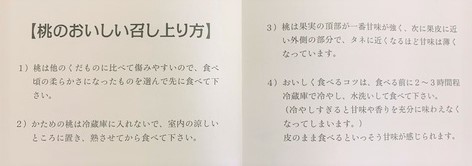 【桃のおいしい召し上り方】
1）桃は他のくだものに比べて傷みやすいので、食べ
頃の柔らかさになったものを選んで先に食べて下
さい。
2）かための桃は冷蔵庫に入れないで、室内の涼しい
ところに置き、熟させてから食べて下さい。
3）桃は果実の頂部が一番甘味が強く、次に果皮に近
い外側の部分で、タネに近くなるほど甘味は薄く
なっています。
4）おいしく食べるコツは、食べる前に2～3時間程
冷蔵庫で冷やし、水洗いして食べて下さい。
（冷やしすぎると甘味や香りを充分に味わえなく
なってしまいます。）
皮のまま食べるといっそう甘味が感じられます。